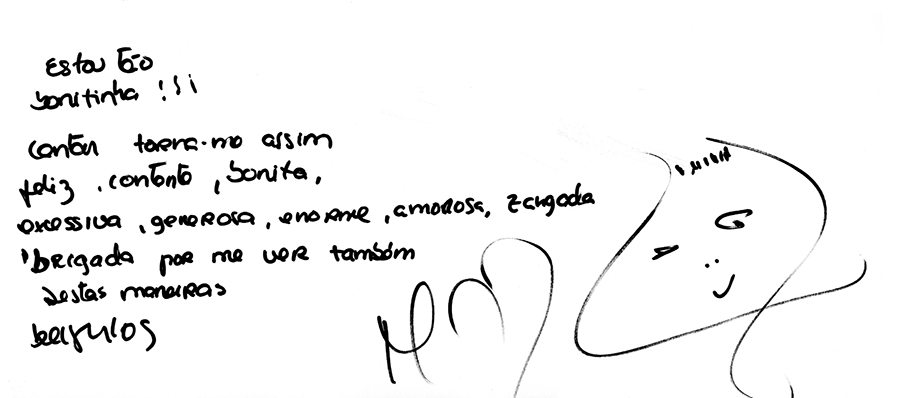 Estou tão
bonitinha !!!
Cantar torna-me assim
feliz, contente, bonita,
excessiva, generosa, enorme, amorosa, zangada
'brigada por me ver também
destas maneiras